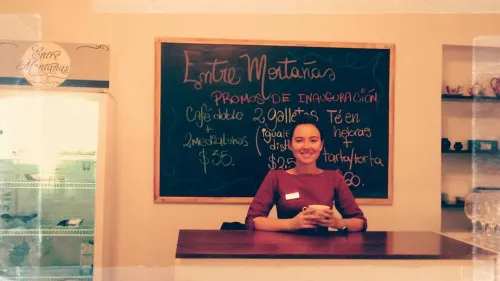 Entre
Montañas
Entre Montañas
PROMOS DE INAUGURACIÓN
Café doble
+
2 medialunas
$35.
2 galletas
(iguale
$2
Té en
hebras
+
tarta/torta